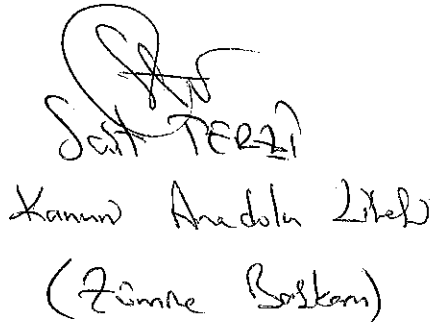 Sait TERZİ
Kanuni Anadolu Lisesi
(Zümre Başkanı)